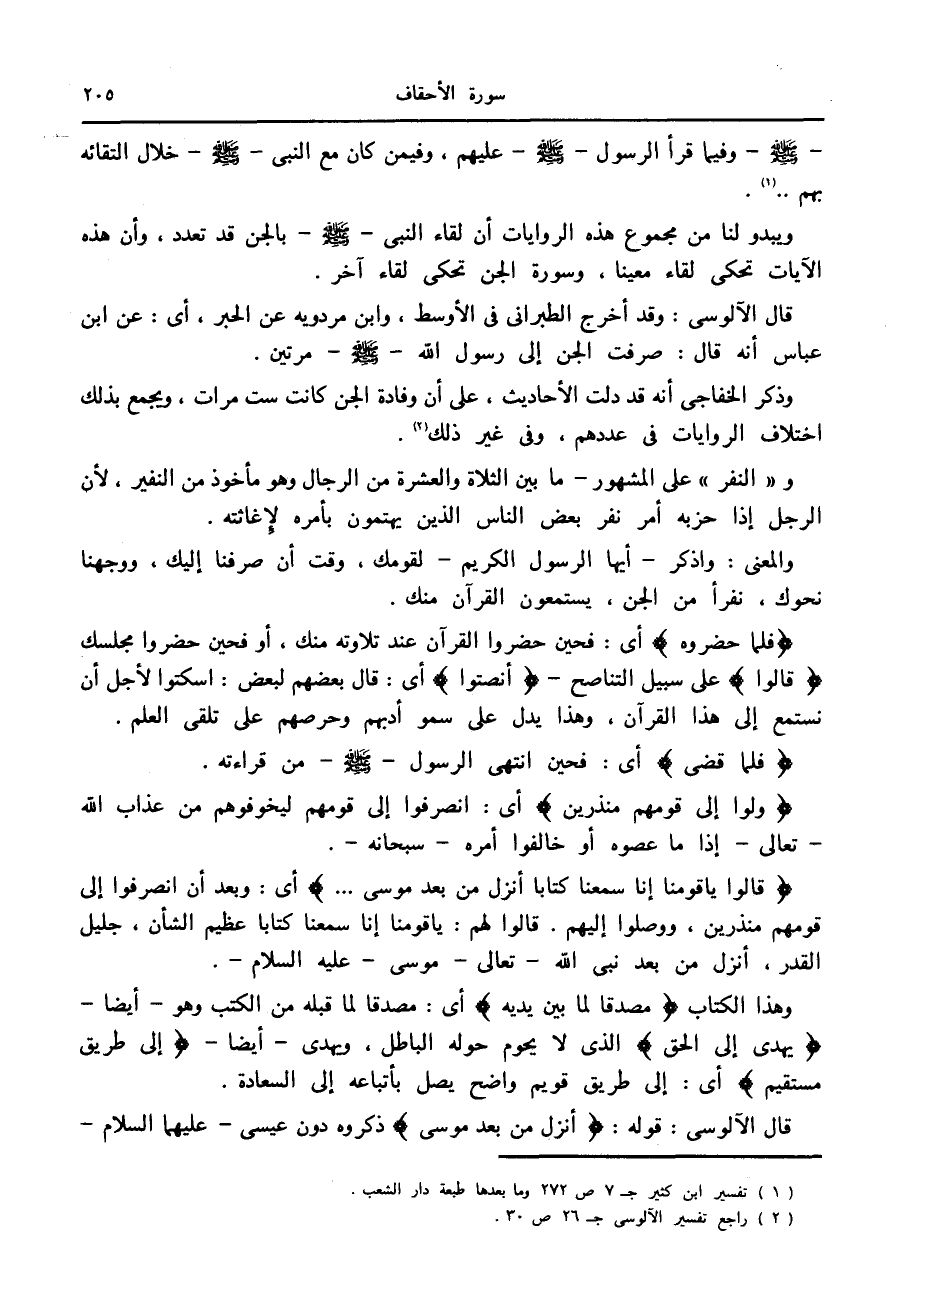 سورة الأحقاف ٢٠٥
– ﷺ – وفيما قرأ الرسول – ﷺ – عليهم ، وفيمن كان مع النبى – ﷺ – خلال التقائه
بهم ..(١) .
ويبدو لنا من مجموع هذه الروايات أن لقاء النبى – ﷺ – بالجن قد تعدد ، وأن هذه
الآيات تحكى لقاء معينا ، وسورة الجن تحكى لقاء آخر .
قال الآلوسى : وقد أخرج الطبرانى فى الأوسط ، وابن مردويه عن الحبر ، أى : عن ابن
عباس أنه قال : صرفت الجن إلى رسول الله – ﷺ – مرتين .
وذكر الخفاجى أنه قد دلت الأحاديث ، على أن وفادة الجن كانت ست مرات ، ويجمع بذلك
اختلاف الروايات فى عددهم ، وفى غير ذلك(٢) .
و « النفر » على المشهور – ما بين الثلاة والعشرة من الرجال وهو مأخوذ من النفير ، لأن
الرجل إذا حزبه أمر نفر بعض الناس الذين يهتمون بأمره لإغاثته .
والمعنى : واذكر – أيها الرسول الكريم – لقومك ، وقت أن صرفنا إليك ، ووجهنا
نحوك ، نفرأ من الجن ، يستمعون القرآن منك .
﴿فلما حضروه ﴾ أى : فحين حضروا القرآن عند تلاوته منك ، أو فحين حضروا مجلسك
﴿ قالوا ﴾ على سبيل التناصح – ﴿ أنصتوا ﴾ أى : قال بعضهم لبعض : اسكتوا لأجل أن
نستمع إلى هذا القرآن ، وهذا يدل على سمو أدبهم وحرصهم على تلقى العلم .
﴿ فلما قضى ﴾ أى : فحين انتهى الرسول – ﷺ – من قراءته .
﴿ ولوا إلى قومهم منذرين ﴾ أى : انصرفوا إلى قومهم ليخوفوهم من عذاب الله
– تعالى – إذا ما عصوه أو خالفوا أمره – سبحانه – .
﴿ قالوا ياقومنا إنا سمعنا كتابا أنزل من بعد موسى ... ﴾ أى : وبعد أن انصرفوا إلى
قومهم منذرين ، ووصلوا إليهم . قالوا لهم : ياقومنا إنا سمعنا كتابا عظيم الشأن ، جليل
القدر ، أنزل من بعد نبى الله – تعالى – موسى – عليه السلام – .
وهذا الكتاب ﴿ مصدقا لما بين يديه ﴾ أى : مصدقا لما قبله من الكتب وهو – أيضا –
﴿ يهدى إلى الحق ﴾ الذى لا يحوم حوله الباطل ، ويهدى – أيضا – ﴿ إلى طريق
مستقيم ﴾ أى : إلى طريق قويم واضح يصل بأتباعه إلى السعادة .
قال الآلوسى : قوله : ﴿ أنزل من بعد موسى ﴾ ذكروه دون عيسى – عليهما السلام –
( ١ ) تفسير ابن كثير جـ ٧ ص ٢٧٢ وما بعدها طبعة دار الشعب .
( ٢ ) راجع تفسير الآلوسى جـ ٢٦ ص ٣٠ .